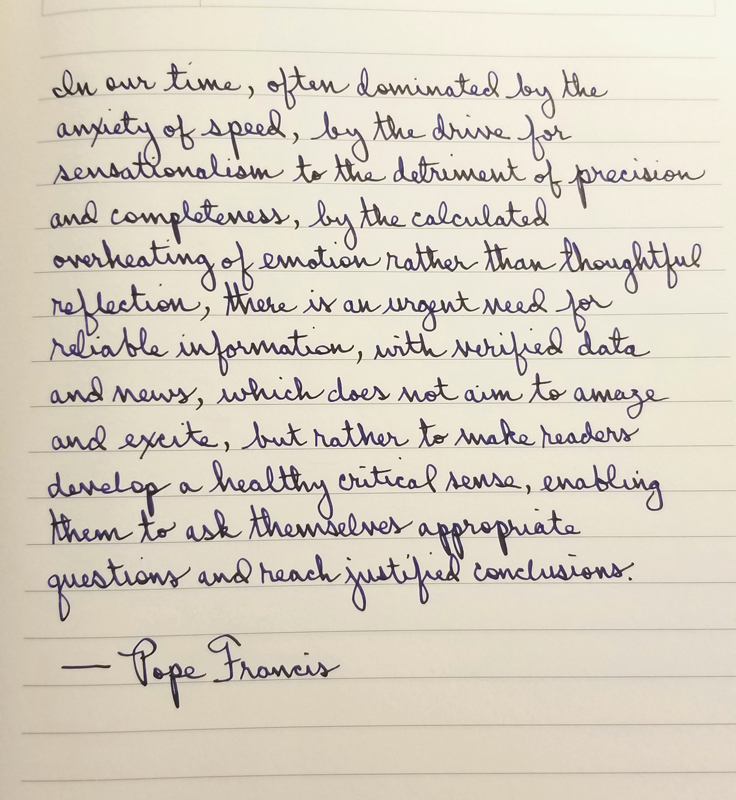 In our time, often dominated by the
anxiety of speed, by the drive for
sensationalism to the detriment of precision
and completeness, by the calculated
overheating of emotion rather than thoughtful
reflection, there is an urgent need for
reliable information, with verified data
and news, which does not aim to amaze
and excite, but rather to make readers
develop a healthy critical sense, enabling
them to ask themselves appropriate
questions and reach justified conclusions.
— Pope Francis